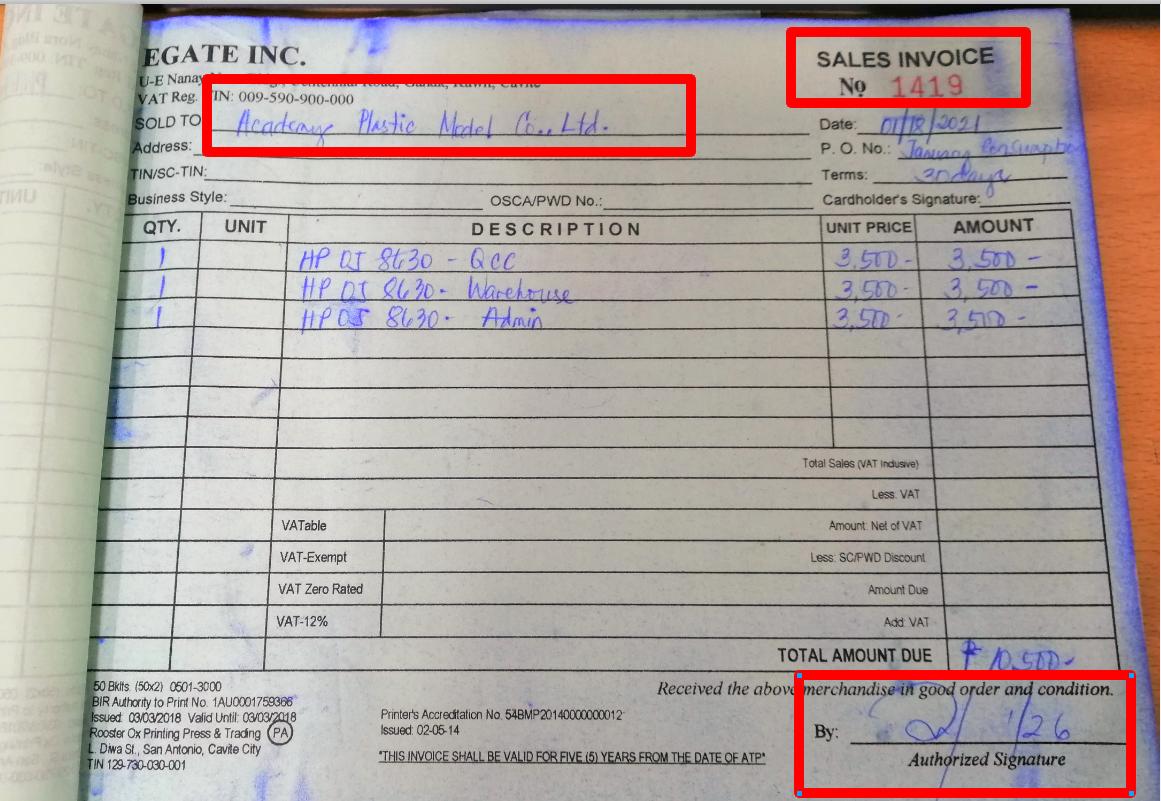 EGATE INC.
SALES INVOICE
U-E Nanay
No 1419
VAT Reg. TIN: 009-590-900-000
SOLD TO Academy Plastic Model Co., Ltd.
Date: 01/18/2021
Address:
P. O. No.: January
TIN/SC-TIN:
Terms: 30 days
Business Style: OSCA/PWD No.:
Cardholder's Signature:
QTY. UNIT DESCRIPTION UNIT PRICE AMOUNT
1 HP OJ 8630 - QCC 3,500- 3,500-
1 HP OJ 8630 - Warehouse 3,500- 3,500-
1 HP OJ 8630 - Admin 3,500- 3,500-
Total Sales (VAT Inclusive)
Less: VAT
VATable Amount: Net of VAT
VAT-Exempt Less: SC/PWD Discount
VAT Zero Rated Amount Due
VAT-12% Add: VAT
TOTAL AMOUNT DUE ₱ 10,500-
50 Bklts. (50x2) 0501-3000
BIR Authority to Print No. 1AU0001759366
Issued: 03/03/2018 Valid Until: 03/03/2018
Rooster Ox Printing Press & Trading PA
L. Diwa St., San Antonio, Cavite City
TIN 129-730-030-001
Printer's Accreditation No. 54BMP20140000000012
Issued: 02-05-14
*THIS INVOICE SHALL BE VALID FOR FIVE (5) YEARS FROM THE DATE OF ATP*
Received the above merchandise in good order and condition.
By: 1/26
Authorized Signature